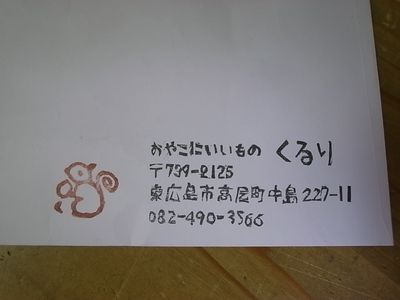 おやこにいいもの くるり
〒739-2125
東広島市高屋町中島227-11
082-490-3566